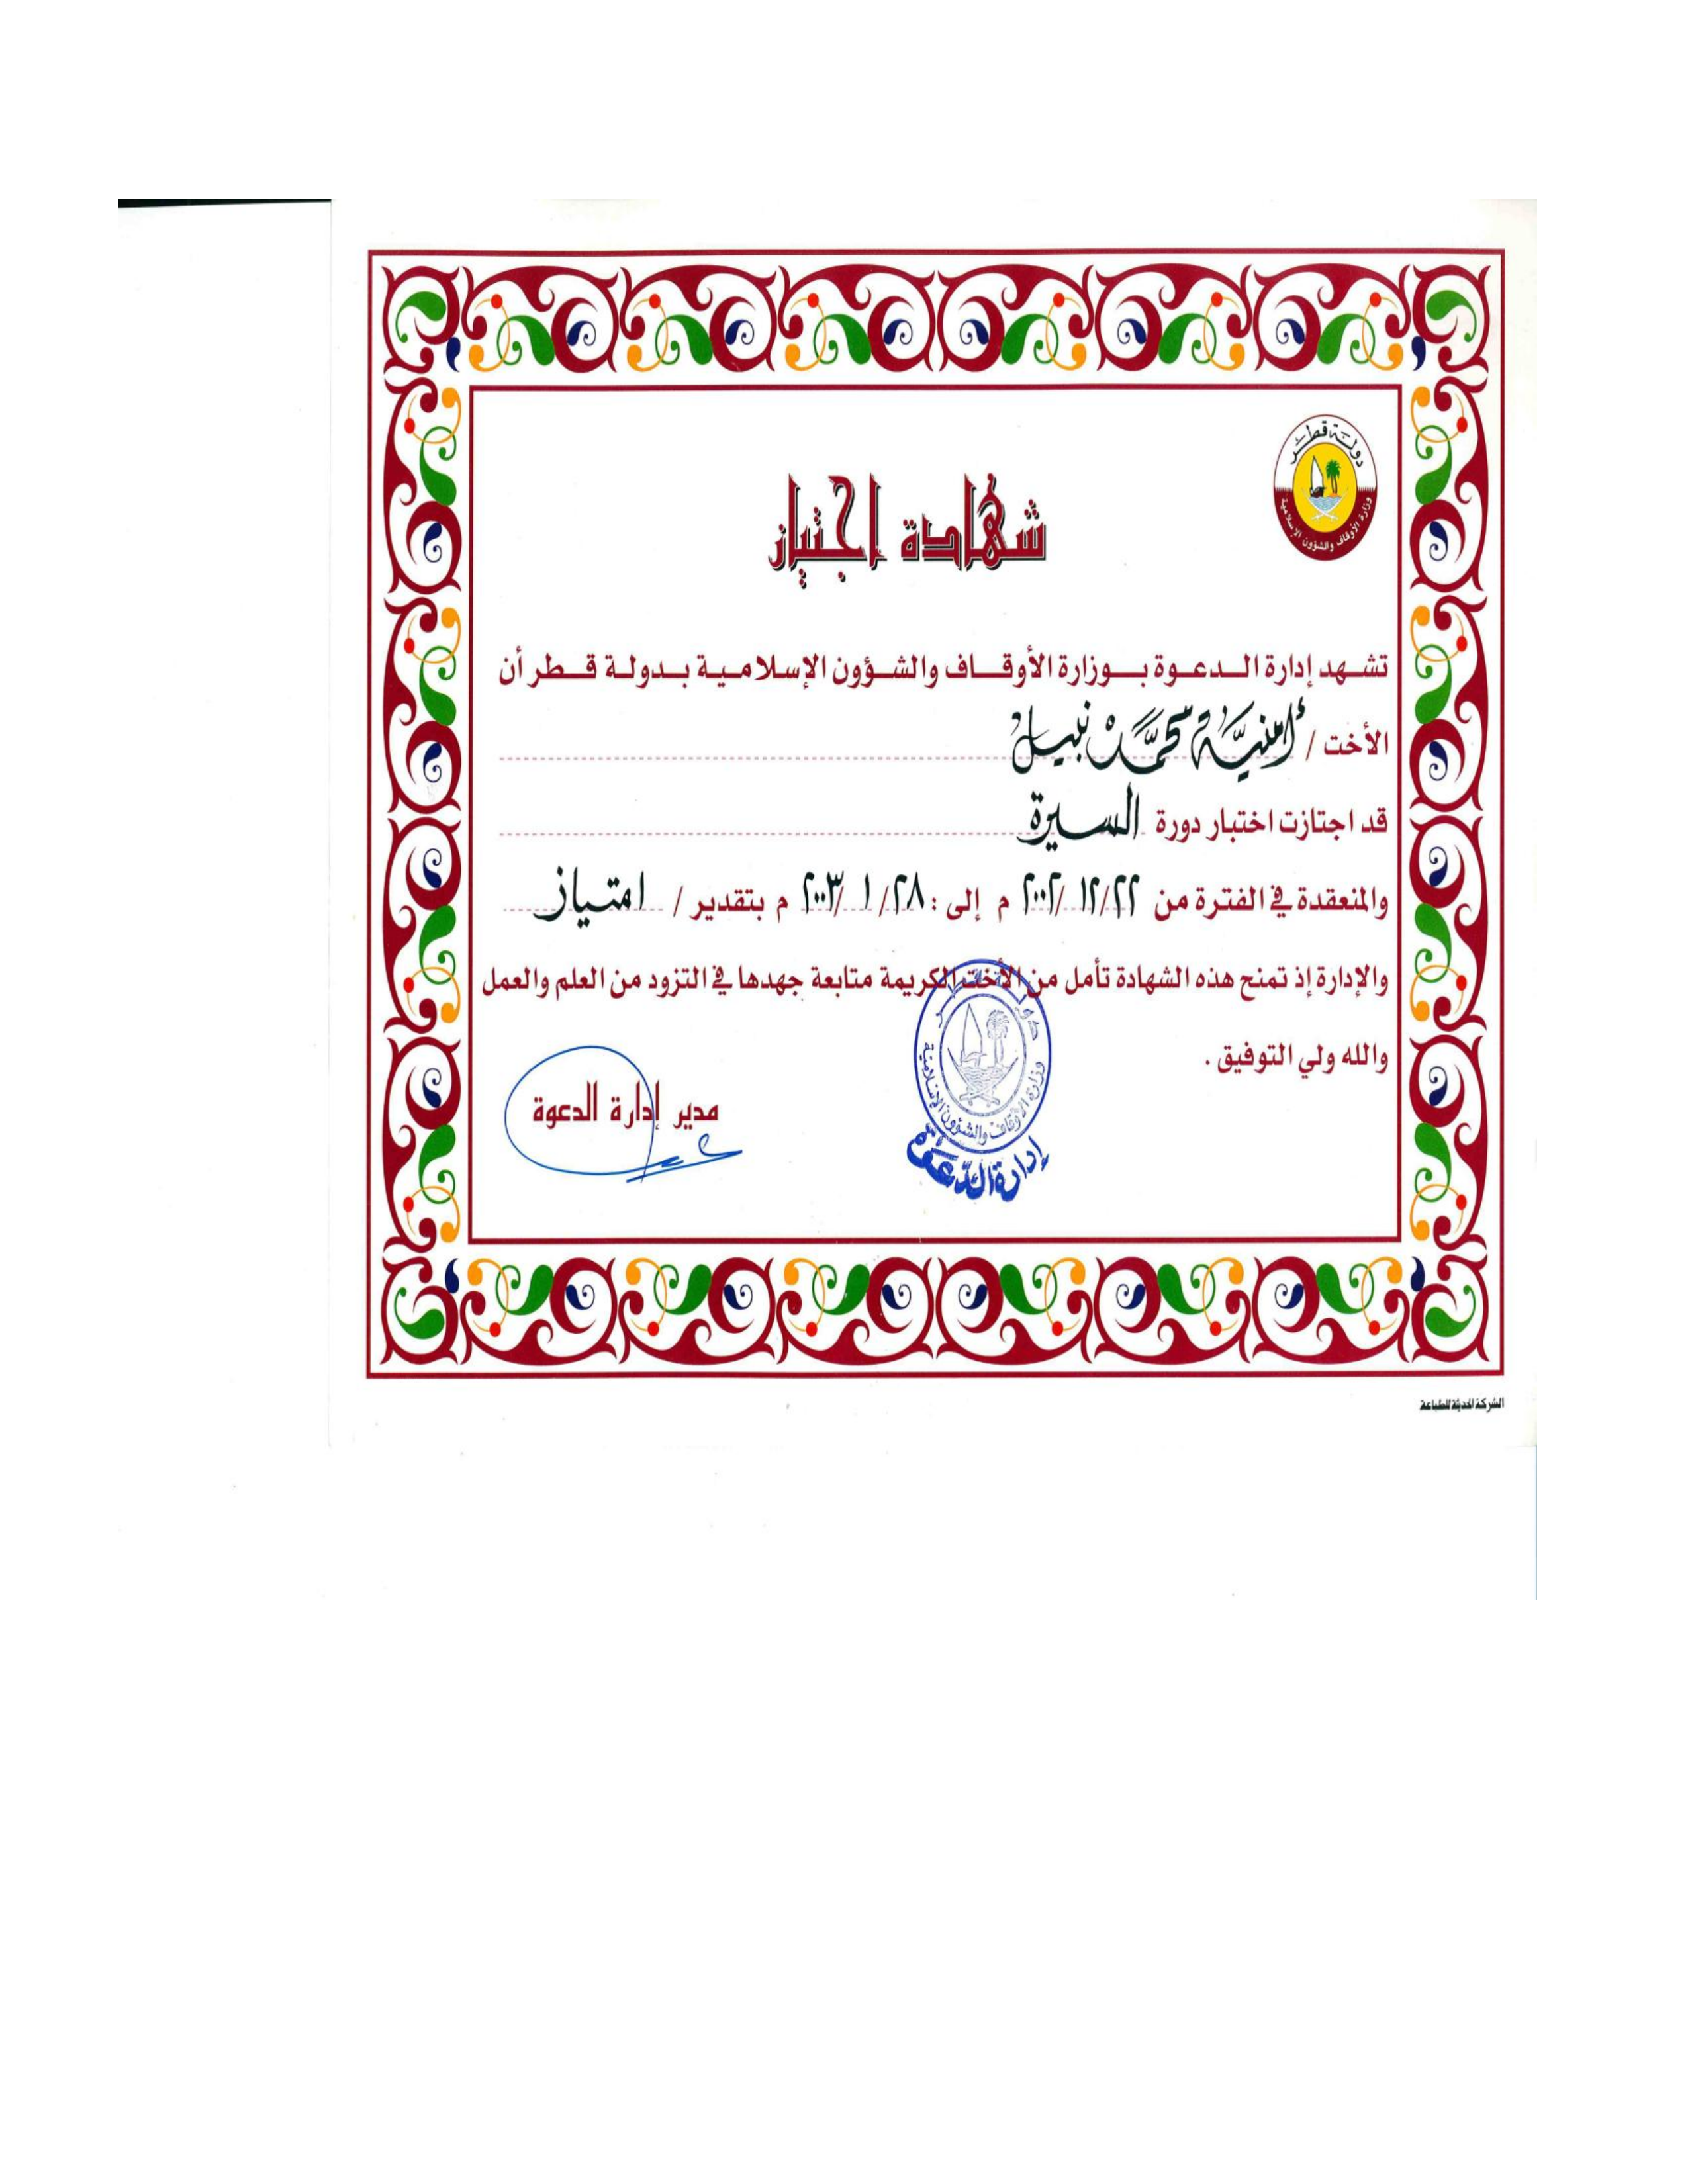 دولة قطر
وزارة الأوقاف والشؤون الإسلامية
شهادة اجتياز
تشهد إدارة الدعوة بوزارة الأوقاف والشؤون الإسلامية بدولة قطر أن
الأخت / أمنيَّة محمَّد نبيل
قد اجتازت اختبار دورة السيرة
والمنعقدة في الفترة من ٢٢/١٢/٢٠٠٢ م إلى : ٢٨/١/٢٠٠٣ م بتقدير / امتياز
والإدارة إذ تمنح هذه الشهادة تأمل من الأخت الكريمة متابعة جهدها في التزود من العلم والعمل
والله ولي التوفيق .
مدير إدارة الدعوة
دولة قطر
وزارة الأوقاف والشؤون الإسلامية
إدارة الدعوة
الشركة الحديثة للطباعة